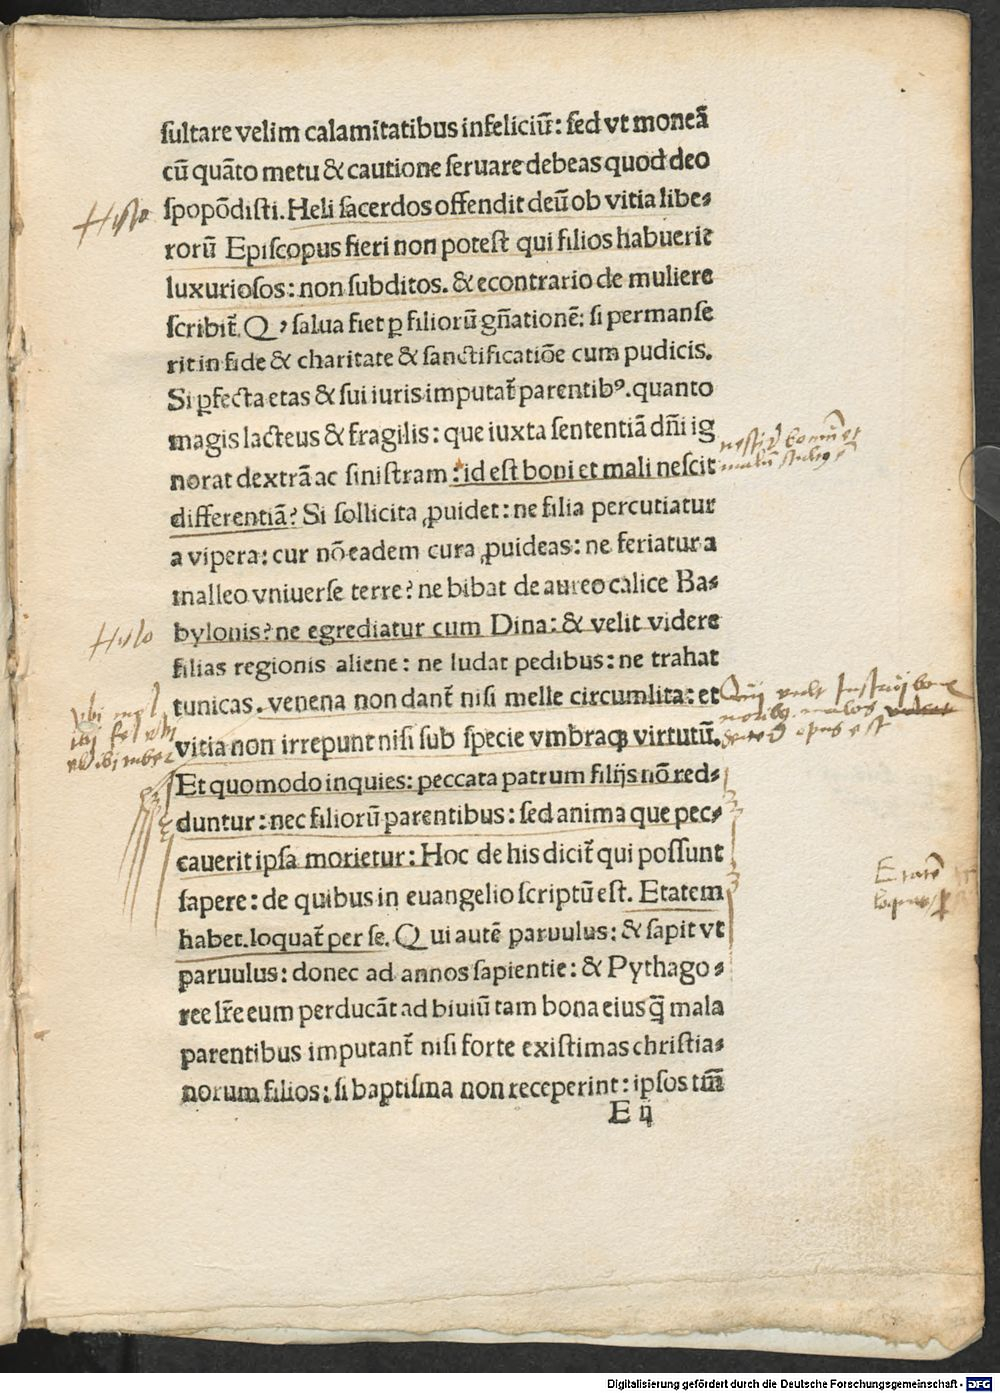 ſultare velim calamitatibus infeliciū: ſed vt moneā
cū quāto metu & cautione ſeruare debeas quod deo
Hysto
ſpopōdiſti. Heli ſacerdos offendit deū ob vitia libe⸗
rorū Epiſcopus fieri non poteſt qui filios habuerit
luxurioſos: non ſubditos. & econtrario de muliere
ſcribit̄. Qꝫ ſalua fiet ꝑ filiorū gn̄ationē: ſi permanſe
rit in fide & charitate & ſanctificatiōe cum pudicis.
Si ꝑfecta etas & ſui iuris imputat̄ parentibꝰ. quanto
magis lacteus & fragilis: que iuxta ſententiā dn̄i ig
norat dextrā ac ſiniſtram: id eſt boni et mali neſcit
differentiā? Si ſollicita ꝓuidet: ne filia percutiatur
a vipera: cur nō eadem cura ꝓuideas: ne feriatur a
malleo vniuerſe terre? ne bibat de aureo calice Ba⸗
Hysto
bylonis? ne egrediatur cum Dina: & velit videre
filias regionis aliene: ne ludat pedibus: ne trahat
tunicas. venena non dant̄ niſi melle circumlita: et
vbi mel
ibi fel
vitia non irrepunt niſi ſub ſpecie vmbraqꝫ virtutū.
opus est
Et quomodo inquies: peccata patrum filijs nō red⸗
duntur: nec filiorū parentibus: ſed anima que pec⸗
cauerit ipſa morietur: Hoc de his dicit̄ qui poſſunt
Etatē
ſapere: de quibus in euangelio ſcriptū eſt. Etatem
habet. loquat̄ per ſe. Qui autē paruulus: & ſapit vt
paruulus: donec ad annos ſapientie: & Pythago⸗
ree lr̄e eum perducāt ad biuiū tam bona eius q̄ mala
parentibus imputant̄ niſi forte exiſtimas chriſtia⸗
norum filios: ſi baptiſma non receperint: ipſos tm̄
E ij
Digitalisierung gefördert durch die Deutsche Forschungsgemeinschaft - DFG